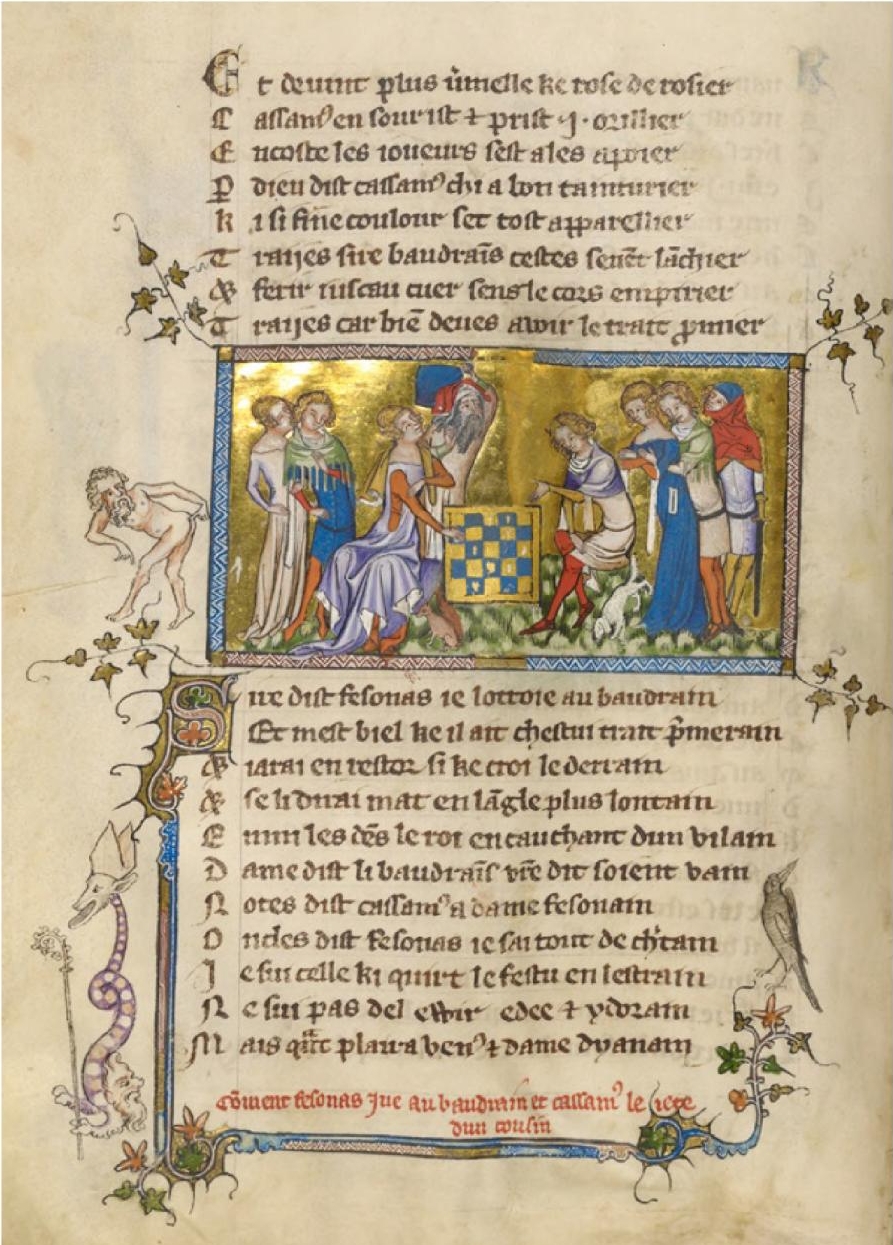 Et deuint plus v̄melle ke rose de rosier
Cassan᷒ en sourist ⁊ prist ·j· orillier
Encoste les ioueurs sest ales apoier
P dieu dist cassan᷒ chi a bon tainturier
ki si fine coulour set tost apparellier
Traijes sire baudraīs cestes seuēt lācier
& ferir iuscau cuer sens le cors empirier
Traijes car biē deues avoir le trait p̄mier
Sire dist fesonas ie lottroie au baudrain
Et mest biel ke il ait chestui trait p̄merain
& iarai en restor si ke croi le derrain
& se li dūrai mat en lāgle plus lontain
Enmi les dēs le roi en cauchant dun vilain
Dame dist li baudraīs vr̄e dit soient vain
Notes dist cassan᷒ a dame fesonain
Ondes dist fesonas ie sai tout de ch̄tain
Je sui celle ki quirt le festu en lestrain
Ne sui pas del edee ⁊ ydorain
Mais q̄nt plaira ven᷒ ⁊ dame dyanain
Cōment fesonas Jue au baudrain et cassan᷒ le iete
dun cousin